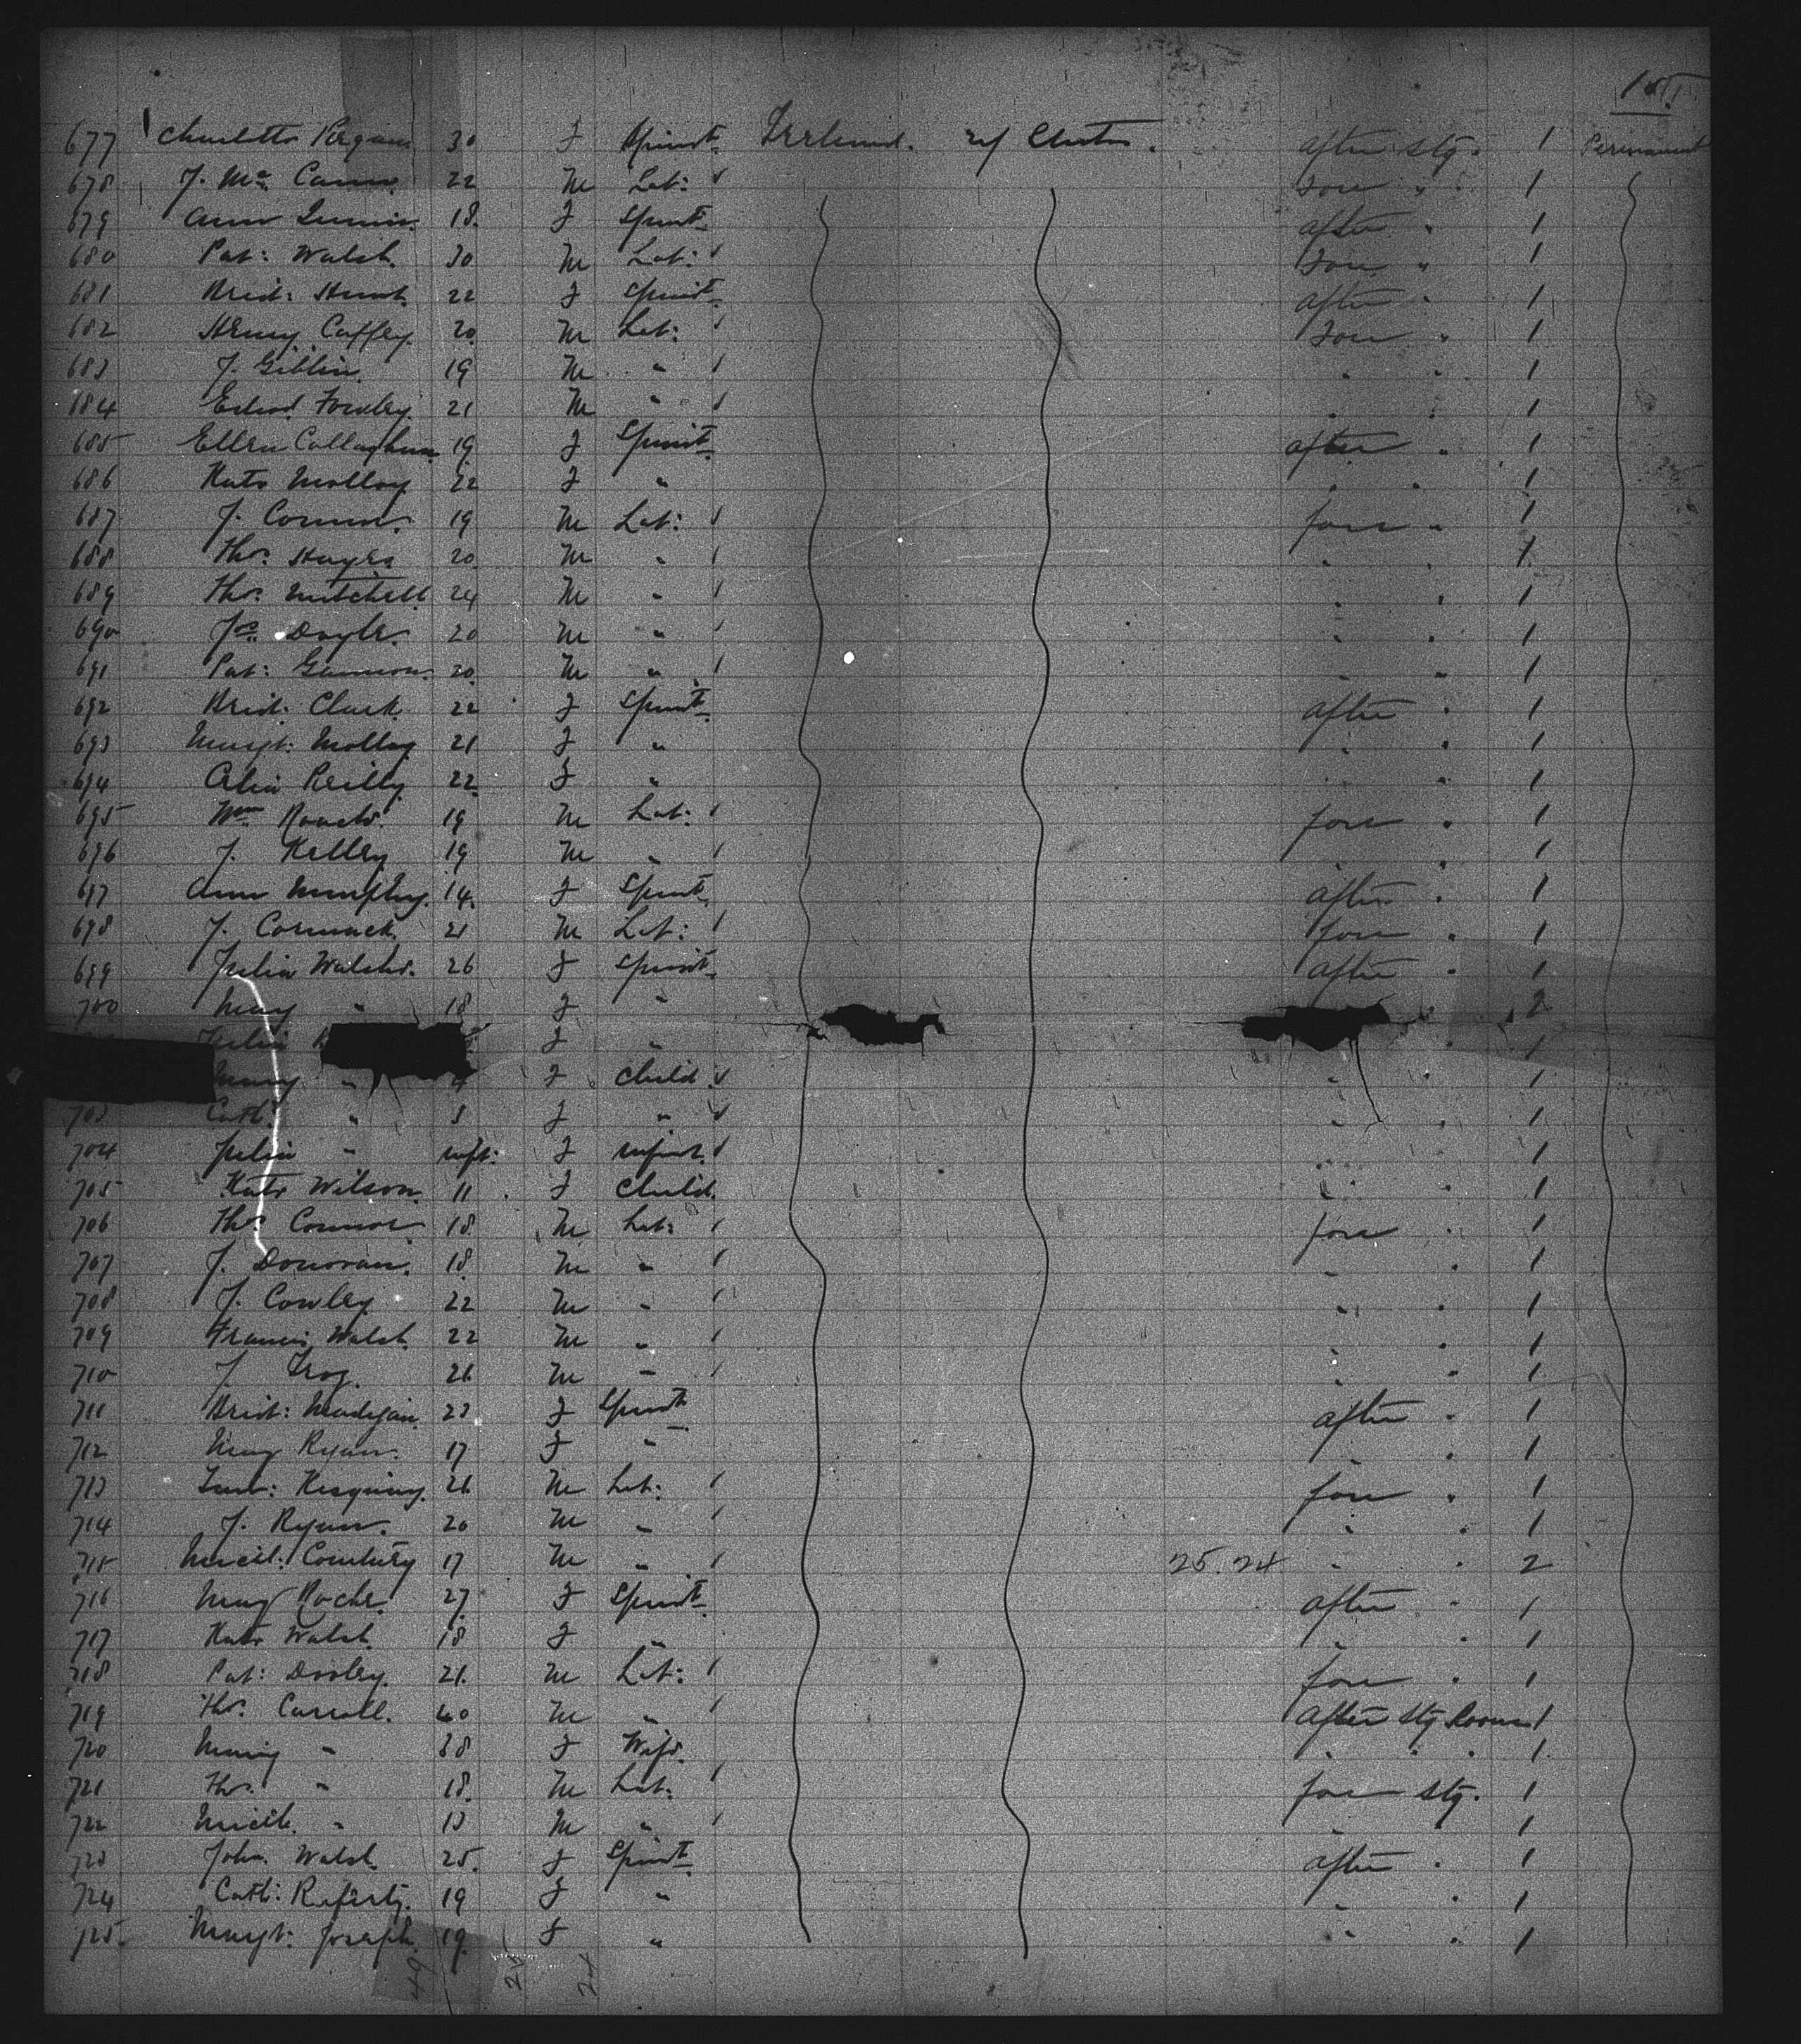 677 Charlotte 30 F Spinst. Ireland. U States. after Stg. 1 Permanent
678 J. McCann 22 M Lab: fore " 1
679 Ann 18. F Spinst. after " 1
680 Pat: Walsh. 30 M Lab: fore " 1
681 Brid: Hunt. 22 F Spinst. after " 1
682 Henry Caffey. 20. M Lab: fore " 1
683 J. Giblin. 19 M " " " 1
684 Edwd. Fowley. 21 M " " " 1
685 Ellen Callaghan 19. F Spinst. after " 1
686 Kate Molloy 22 F " " " 1
687 J. Connor. 19 M Lab: fore " 1
688 Thos. Hayes 20. M " " " 1
689 Thos. Mitchell 24 M " " " 1
690 Jas. Doyle. 20 M " " " 1
691 Pat: Gannon. 20. M " " " 1
692 Brid: Clark. 22 F Spinst. after " 1
693 Margt: Molloy 21 F " " " 1
694 Celia Reilly 22. F " " " 1
695 Wm. 19 M Lab: fore " 1
696 J. Kelley 19 M " " " 1
697 Ann Murphy. 14. F Spinst. after " 1
698 J. Cormack. 21 M Lab: fore " 1
699 Julia Walsh. 26 F Spinst. after " 1
700 Mary " 18 F " 2
Julia F " " 1
Mary " 4 F Child " " 1
703 Cath: " 3 F " " " 1
704 Julia " inft: F infant. " " 1
705 Kate Wilson. 11 F Child. " " 1
706 Thos. Connor 18. M Lab: fore " 1
707 J. Donovan. 18. M " " " 1
708 J. Cowley. 22 M " " " 1
709 Francis Walsh. 22 M " " " 1
710 J. Troy. 26 M " " " 1
711 Brid: Madigan. 23 F Spinst. after " 1
712 Mary Ryan. 17 F " " " 1
713 26 M Lab: fore " 1
714 J. Ryan. 20 M " " " 1
715 Michl: Courtney 17 M " 25.24 " " 2
716 Mary Roche. 27. F Spinst. after " 1
717 Kate Walsh. 18 F " " " 1
718 Pat: Dooley. 21. M Lab: fore " 1
719 Thos. Carroll. 40 M " After Stg Rooms 1
720 Mary " 38 F Wife. " " " 1
721 Thos. " 18. M Lab. fore Stg. 1
722 Michl. " 13 M " " " 1
723 Walsh. 25. F Spinst. after " 1
724 Cath: Raferty. 19 F " " " 1
725. Margt: Joseph. 19. F " " " 1
49 25 24